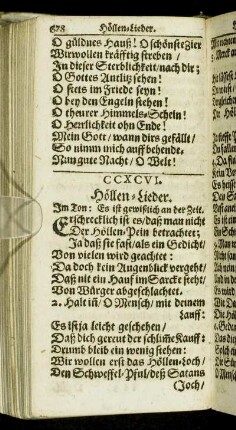 678 Höllen-Lieder.
O güldnes Hauß! O schönste Zier
Wir wollen kräfftig streben /
In dieser Sterblichkeit / nach dir;
O Gottes Antlitz sehen!
O stets im Friede seyn!
O bey den Engeln stehen!
O theurer Himmels-Schein!
O Herrlichkeit ohn Ende!
Mein Gott / wann dirs gefällt /
So nimm mich auff behende.
Nun gute Nacht / O Welt!
CCXCVI.
Höllen-Lieder.
Im Ton: Es ist gewißlich an der Zeit.
Erschrecklich ist es / daß man nicht
Der Höllen-Pein betrachtet;
Ja daß sie fast / als ein Gedicht /
Von vielen wird geachtet:
Da doch kein Augenblick vergeht /
Daß nit ein Hauf im Sarcke steht /
Von Würger abgeschlachtet.
2. Halt iñ / O Mensch / mit deinem
Lauff:
Es ist ja leicht geschehen /
Daß dich gereut der schlim̃e Kauff:
Drumb bleib ein wenig stehen:
Wir wollen erst das Höllen-Loch /
Den Schweffel-Pful / deß Satans
Joch /